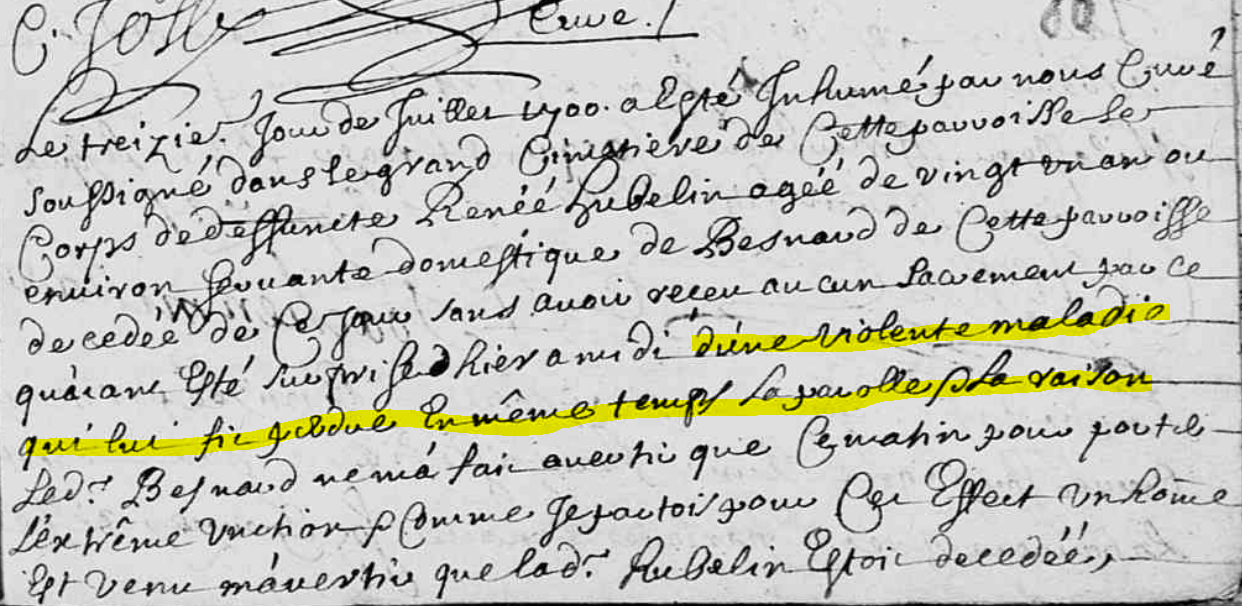 C. Joll
Curé.
Le treizie.^e Jour de Juillet 1700. a Esté Inhumé par nous Curé
soussigné dans le grand Cimetière de Cette parroisse le
Corps de deffuncte Renéé Hubelin agéé de vingt un an ou
environ servante domestique de Besnard de Cette parroisse
decedéé de Ce Jour sans avoir receu aucun Sacrement par ce
qu'aiant Esté surprise d'hier a midi d'une violente maladie
qui lui fit perdre En même temps la parolle & la raison
led.^t Besnard ne m'a fait avertir que Ce matin pour porter
l'extrême Unction & Comme Je partois pour Cet Effect Un home
Est venu m'avertir que lad.^e Hubelin Estoit decedéé,